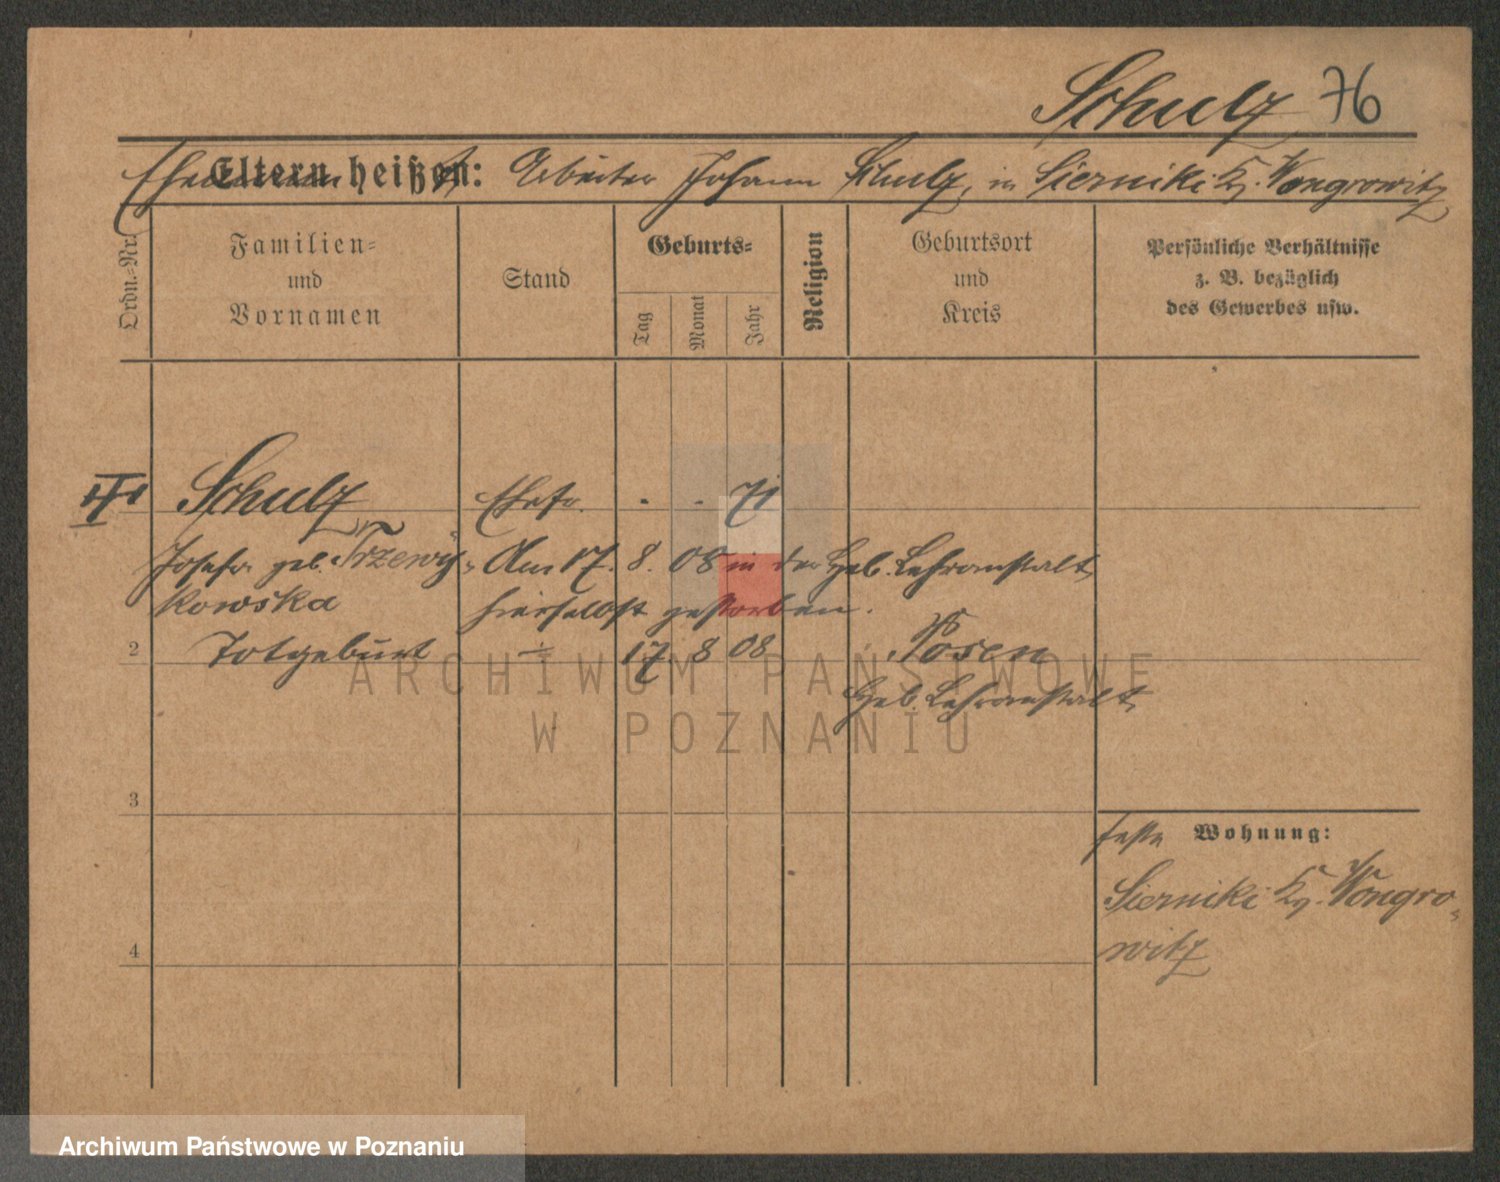 Schulz 76
Eltern heißen:
Ehemann Arbeiter Johann Schulz, in Sierniki Kr. Wongrowitz
Ordn.=Nr.
Familien=
und
Vornamen
Stand
Geburts=
Tag
Monat
Jahr
Religion
Geburtsort
und
Kreis
Persönliche Verhältnisse
z. B. bezüglich
des Gewerbes usw.
Schulz Ehefr. - - 71
Josefa geb. Trzewis= Am 17. 8. 08 in der Heb. Lehranstalt
kowska hierselbst gestorben.
2 Totgeburt ÷ 17 8 08 Posen
Heb. Lehranstalt
3
feste Wohnung:
Sierniki Kr. Wongro=
witz
4
ARCHIWUM PAŃSTWOWE
W POZNANIU
Archiwum Państwowe w Poznaniu